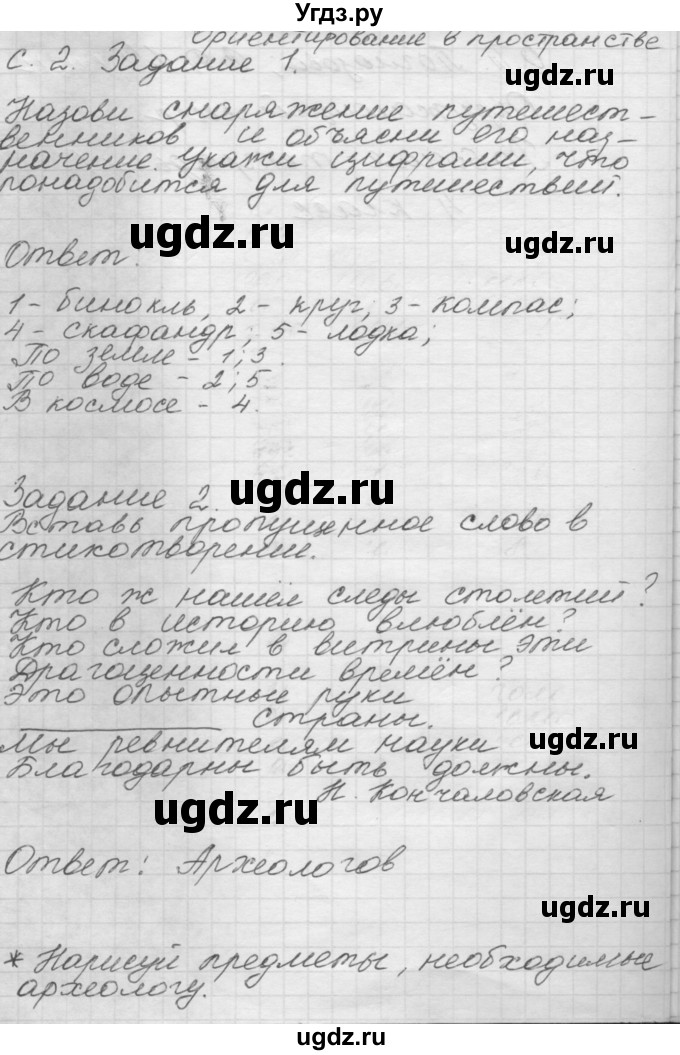 Угдз.ру
Ориентирование в пространстве
с. 2. Задание 1.
Назови снаряжение путешест-
венников и объясни его наз-
начение. Укажи цифрами, что
понадобится для путешествий.
ugdz.ru
ugdz.ru
Ответ.
1 - бинокль, 2 - круг; 3 - компас;
4 - скафандр; 5 - лодка;
ugdz.ru
По земле - 1; 3.
По воде - 2; 5.
В космосе - 4.
Задание 2.
ugdz.ru
Вставь пропущенное слово в
стихотворении.
Кто ж нашёл следы столетий?
Кто в историю влюблён?
Кто сложил в витрины эти
Драгоценности времён?
Это опытные руки
____________ страны.
Мы ревнителям науки
ugdz.ru
Благодарны быть должны.
Н. Кончаловская
ugdz.ru
Ответ: Археологов
ugdz.ru
* Нарисуй предметы, необходимые
археологу.
ugdz.ru